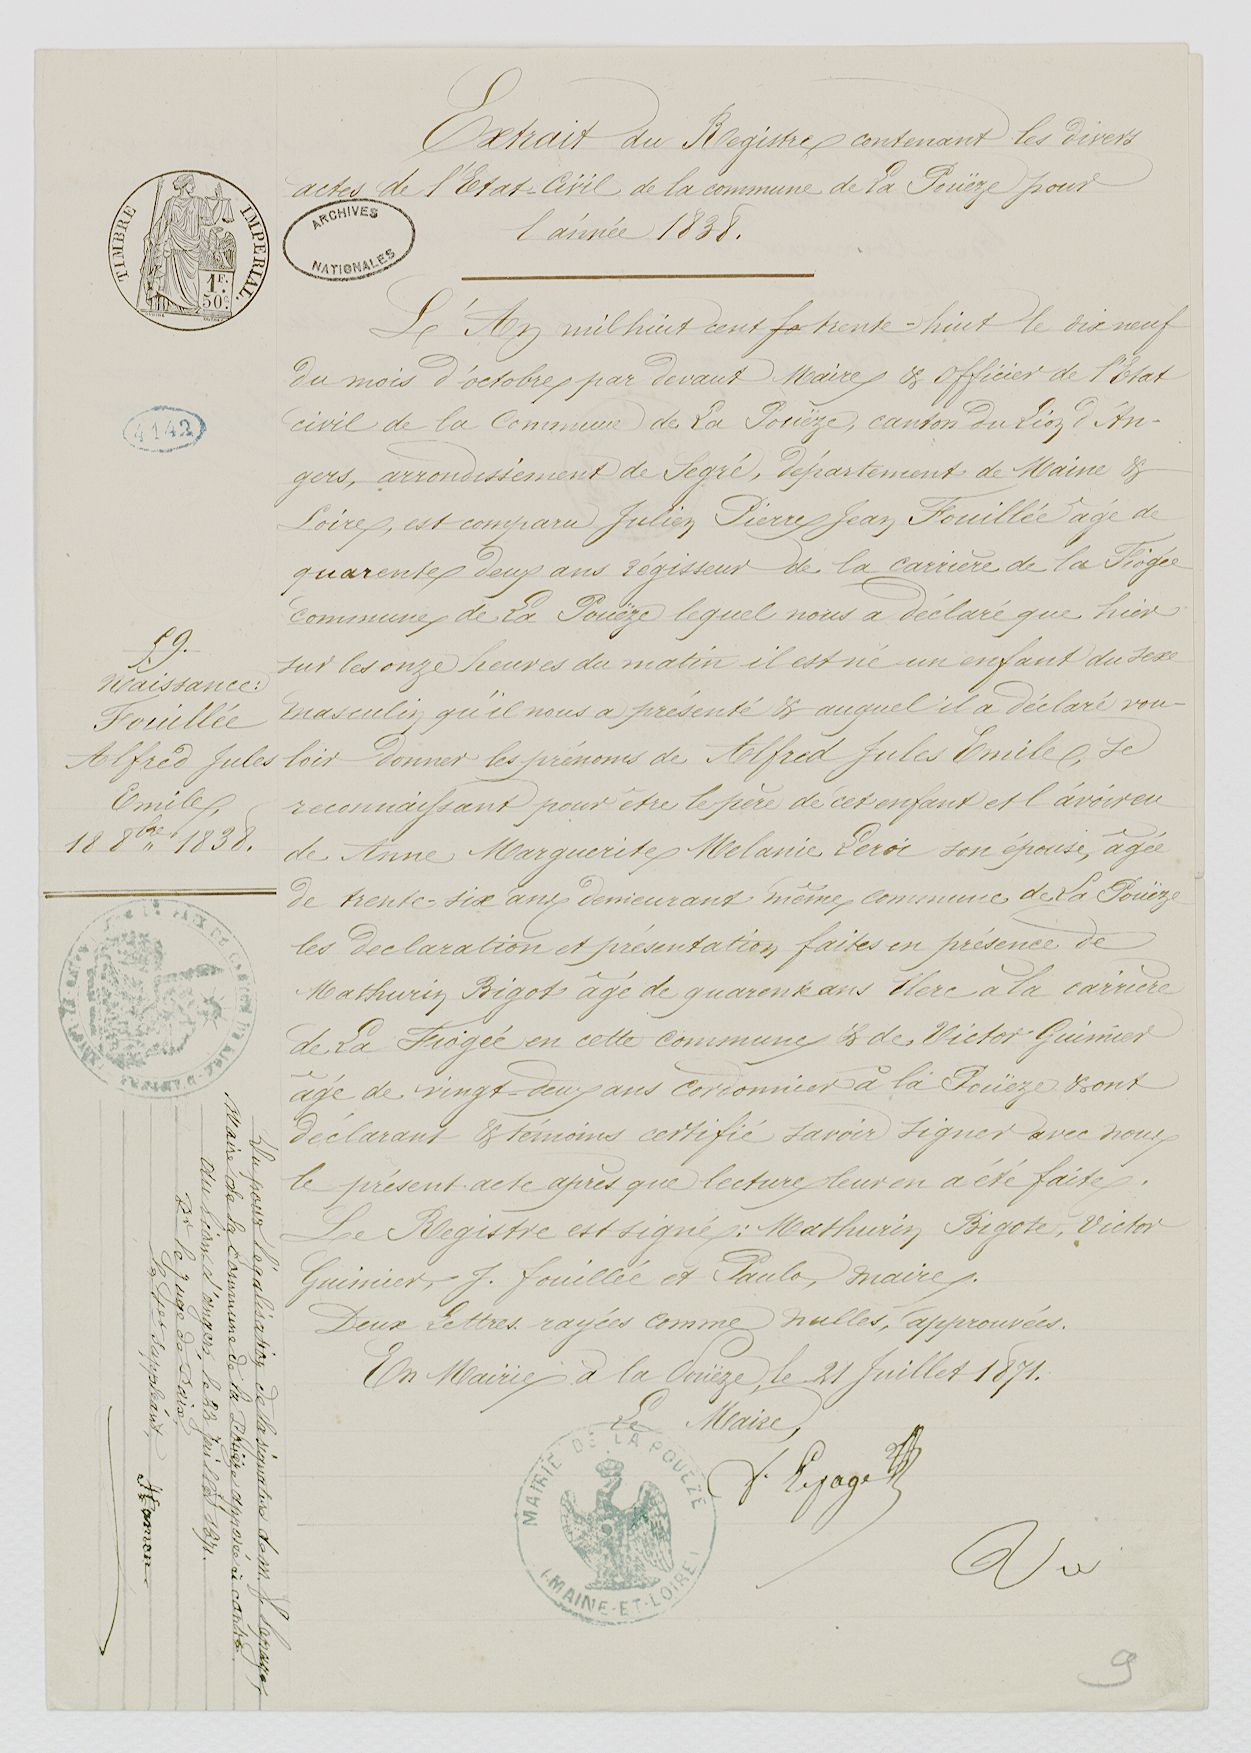 Extrait du Registre contenant les divers
actes de l'Etat-Civil de la commune de La Pouëze pour
l'année 1838.
TIMBRE IMPERIAL
1F. 50c.
ARCHIVES
NATIONALES
Le An mil huit cent fo trente-huit le dix neuf
du mois d'octobre par devant Maire & Officier de l'Etat
civil de la Commune de La Pouëze, canton du Lion d'An-
gers, arrondissement de Segré, département de Maine &
Loire, est comparu Julien Pierre Jean Fouillée âgé de
quarente deux ans régisseur de la carrière de la
commune de La Pouëze lequel nous a déclaré que hier
sur les onze heures du matin il est né un enfant du sexe
masculin qu'il nous a présenté & auquel il a déclaré vou-
loir donner les prénoms de Alfred Jules Emile, se
reconnaissant pour être le père de cet enfant et l'avoir eu
de Anne Marguerite Melanie Leroi son épouse, âgée
de trente-six ans demeurant même commune de La Pouëze
les declaration et présentation faites en présence de
Mathurin Bigot âgé de quarente ans Clerc à la carrière
de La en cette commune & de Victor Guimier
âgé de vingt-deux ans cordonnier à la Pouëze & ont
déclarant & témoins certifié savoir signer avec nous
le présent acte après que lecture leur en a été faite.
Le Registre est signé: Mathurin Bigote, Victor
Guimier, J. fouillée et Paulo, maire.
Deux Lettres rayées comme nulles, approuvées.
En Mairie à la Pouëze, le 21 Juillet 1871.
Le Maire,
Lepage
MAIRIE DE LA POUËZE
(MAINE-ET-LOIRE)
Vu
9
4142
59.
Naissance:
Fouillée
Alfred Jules
Emile,
18 8bre 1838.
Vu pour légalisation de la signature de M. Lepage,
Maire de la Commune de la Pouëze apposée ci contre.
Au Lion d'angers, le 22 juillet 1871.
Pr le Juge de Paix